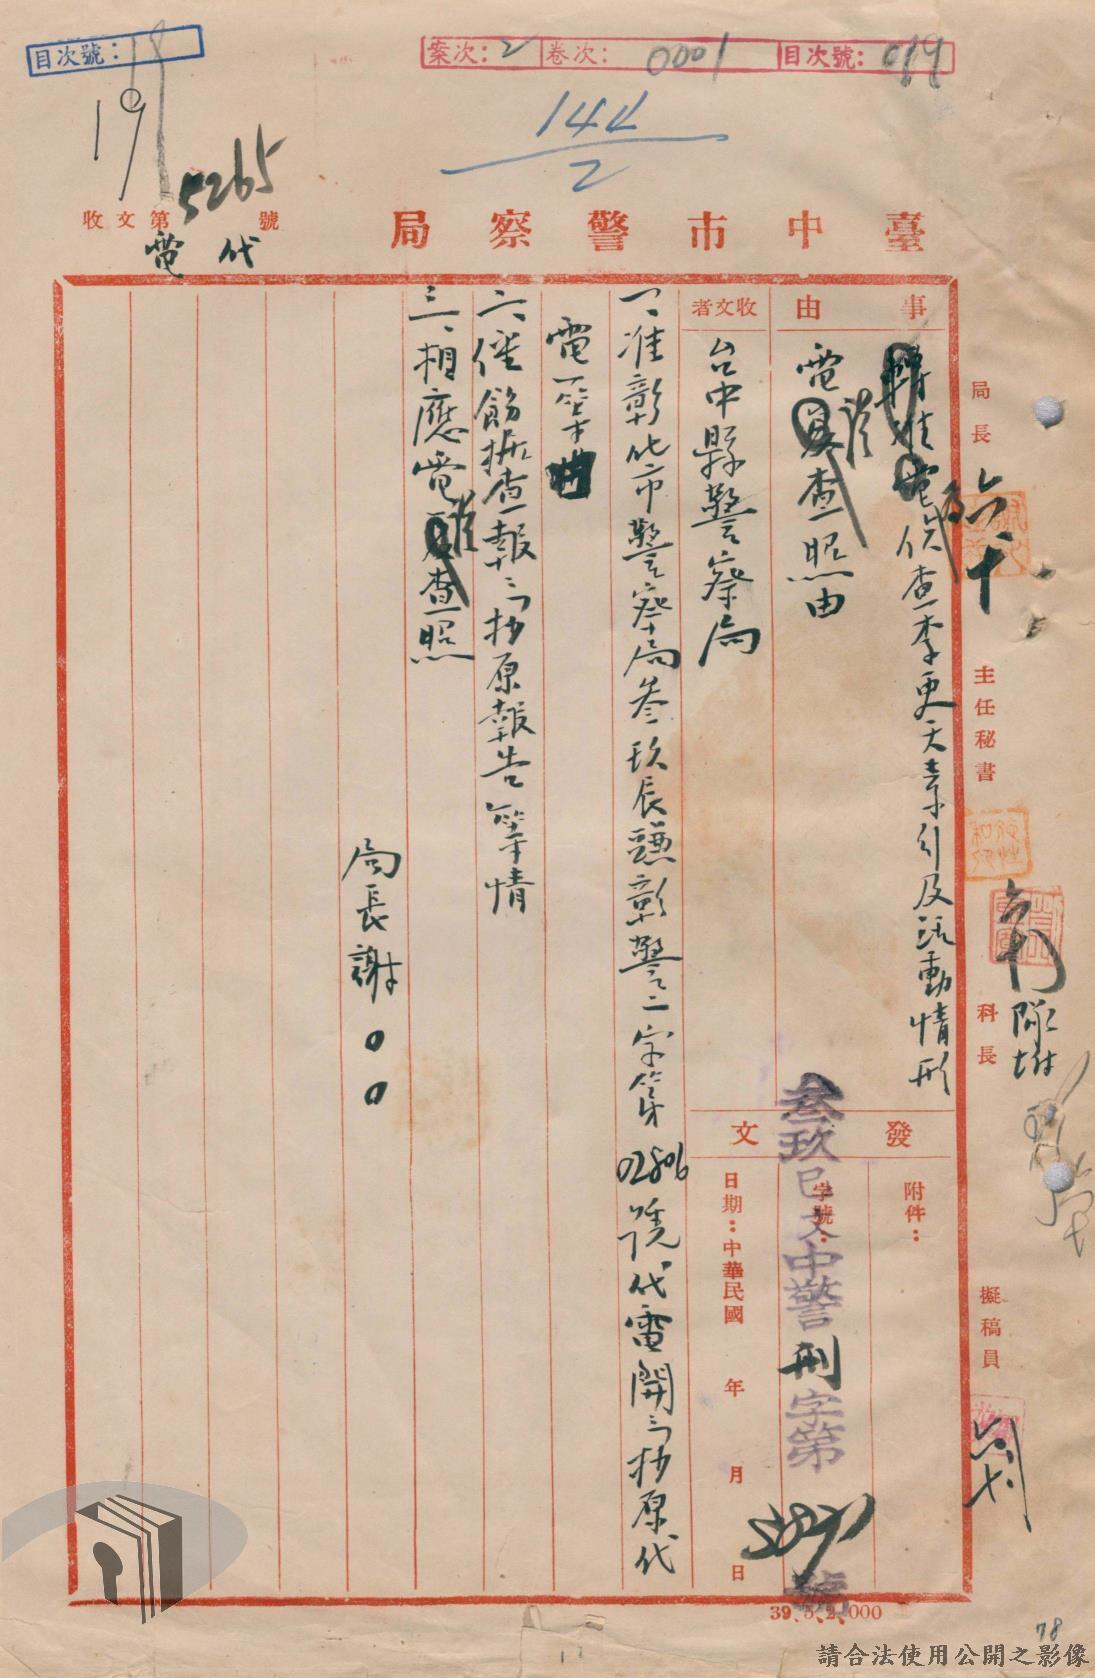 目次號：
19
案次：2
卷次：0001
目次號：019
144
2
收文第5265號
代電
臺中市警察局
事由
電 查李更天素行及活動情形
電 查照由
收文者
台中縣警察局
一、准彰化市警察局叁玖辰 彰警二字第02806號代電開「抄原代
電 」等
二、 飭據查報「抄原報告」等情
三、相應電 查照
局長謝00
發文
附件：
字號：
叁玖巳 中警刑字第 號
日期：中華民國 年 月 日
局長
六十
主任秘書
科長
擬稿員
39.5.2.000
78
請合法使用公開之影像